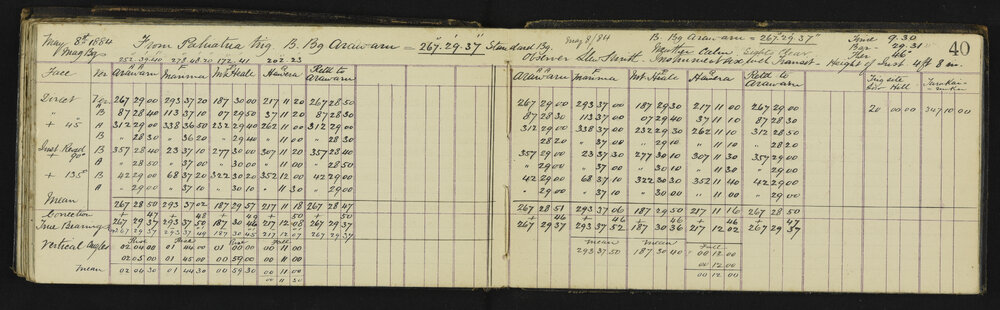 May 8th 1884 From Pahiatua Trig. B. Bg Arawaru = 267°.29'.37" Standard Bg.
Mag Bg 252.39.40 278.48.20 172.41 202.23
Face Ver Arawaru Marima Mt Heale Hawera Retd to Arawaru
Direct A 267 29 00 293 37 20 187 30 00 217 11 20 267 28 50
" B 87 28 40 113 37 10 07 29 50 37 11 20 87 28 30
+ 45° A 312 29 00 338 36 50 232 29 40 262 11 00 312 29 00
B " 28 30 " 36 20 " 29 40 " 11 00 " 28 30
Inst Revsd + 90° B 357 28 40 23 37 10 277 30 00 307 11 20 357 28 40
A " 28 50 " 37 00 " 30 00 " 11 00 " 28 50
+ 135° B 42 29 00 68 37 20 322 30 20 352 12 00 42 29 00
A " 29 00 " 37 10 " 30 10 " 11 30 " 29 00
Mean 267 28 50 293 37 02 187 29 57 217 11 18 267 28 47
Correction + 47 + 48 + 49 + 50 + 50
True Bearings 267 29 37 293 37 50 187 30 46 217 12 08 267 29 37
267 29 37 293 37 49 187 30 45 217 12 07 267 29 37
Vertical Angles Rise Rise Rise Fall
02 04 00 01 44 00 01 00 00 00 11 00
02 05 00 01 45 00 00 59 00 00 12 00
mean 02 04 30 01 44 30 00 59 30 00 11 00
00 11 30
May 8/84 B. Bg Arawaru = 267°.29'.37" Time 9.30
Weather Calm. Lights Clear Bar 29.31
40
Ther 46°
Observer Instrument Transit. Height of Inst 4ft 8 in.
Arawaru Marima Mt Heale Hawera Retd to Arawaru Trig site Hill
267 29 00 293 37 00 187 29 30 217 11 00 267 29 00 20 00 00 347 10 00
87 28 30 113 37 00 07 29 40 37 11 10 87 28 30
312 29 00 338 37 00 232 29 30 262 11 10 312 28 50
" 28 20 " 37 00 " 29 30 " 11 10 " 28 20
357 29 00 23 37 30 277 30 10 307 11 30 357 29 00
" 29 00 " 37 10 " 30 00 " 11 30 " 29 00
42 29 00 68 37 10 322 30 30 352 11 40 42 29 00
" 29 00 " 37 00 " 30 10 " 11 30 " 29 00
267 28 51 293 37 06 187 29 50 217 11 16 267 28 50
+ 46 + 46 + 46 + 46 + 47
267 29 37 293 37 52 187 30 36 217 12 02 267 29 37
mean mean Fall
293 37 50 187 30 40 00 12 00
00 12 00
00 12 00